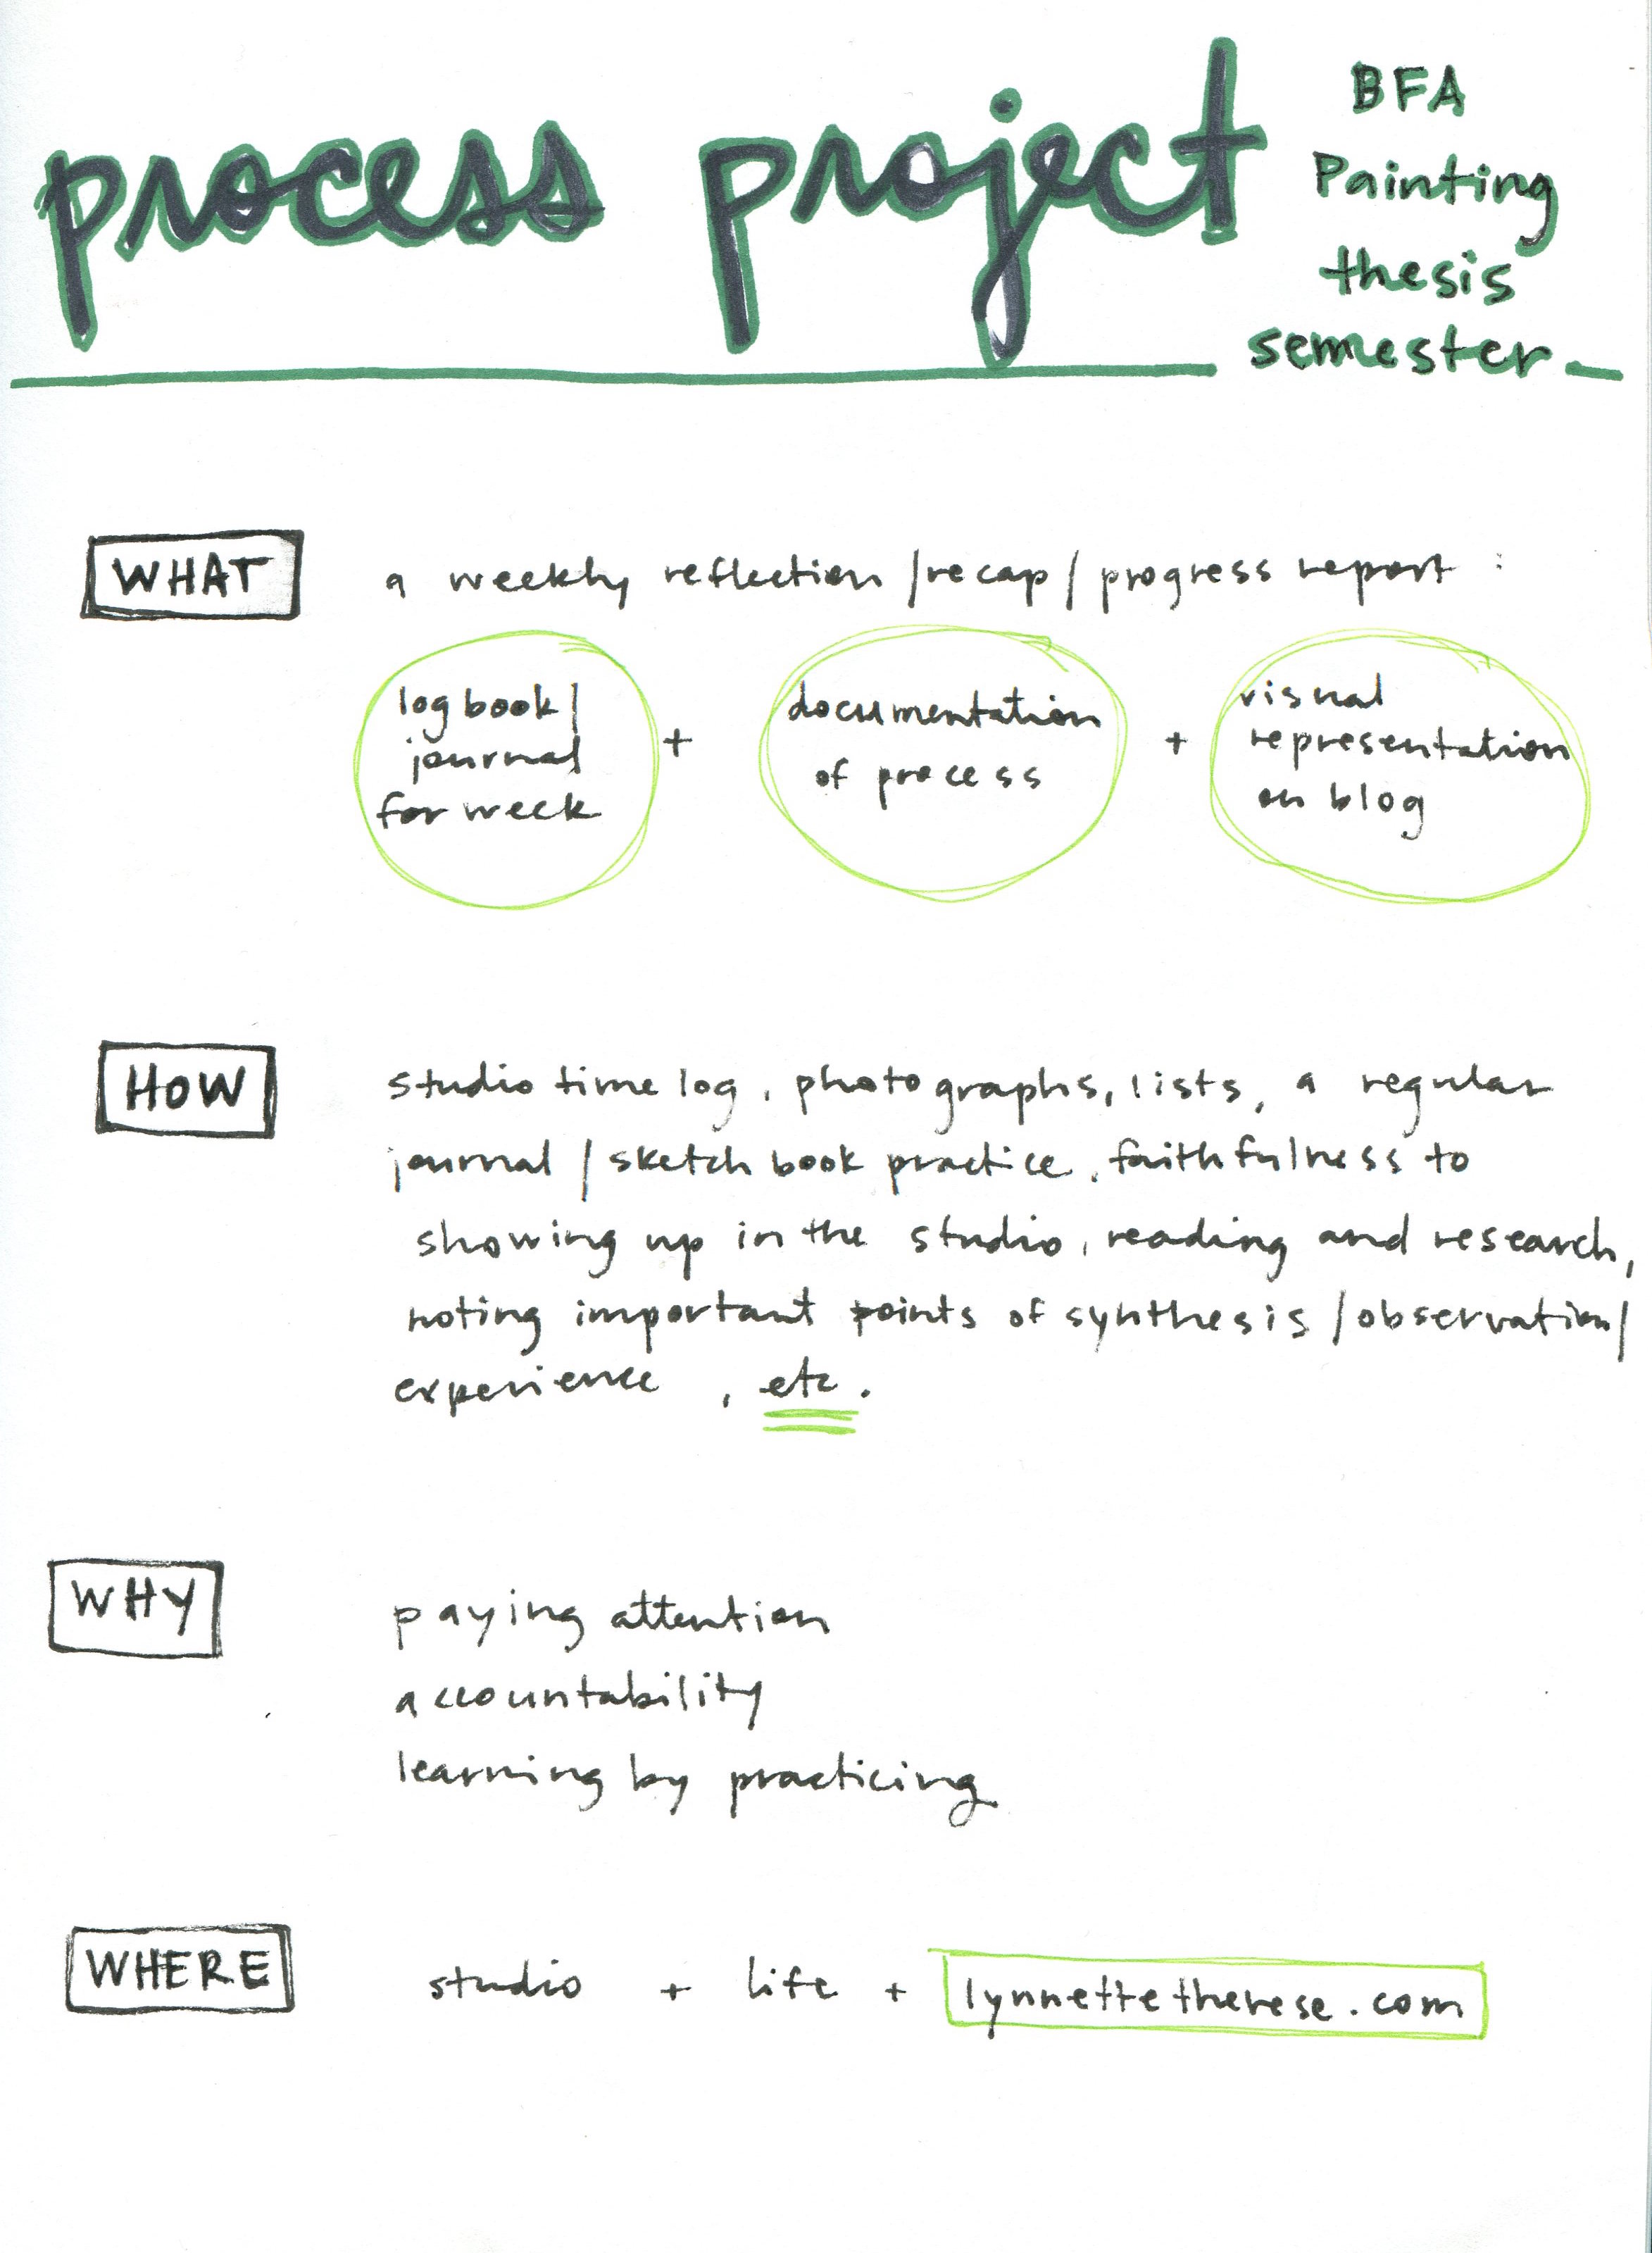 process project
BFA
Painting
thesis
semester
WHAT
a weekly reflection / recap / progress report :
logbook /
journal
for week
+
documentation
of process
+
visual
representation
on blog
HOW
studio time log, photographs, lists, a regular
journal / sketchbook practice, faithfulness to
showing up in the studio, reading and research,
noting important points of synthesis / observation /
experience, etc.
WHY
paying attention
accountability
learning by practicing
WHERE
studio + life + lynnettetherese.com